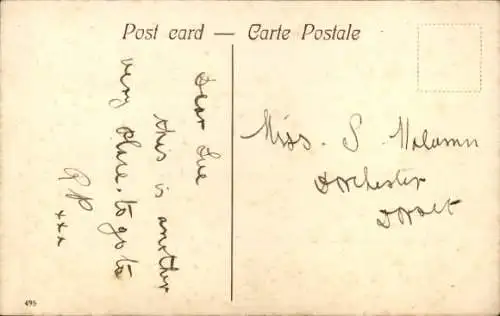 Post card — Carte Postale
Dear Sue
this is another
very place. to go to
AP
xxx
Miss. S
Dorchester
Dorset
495